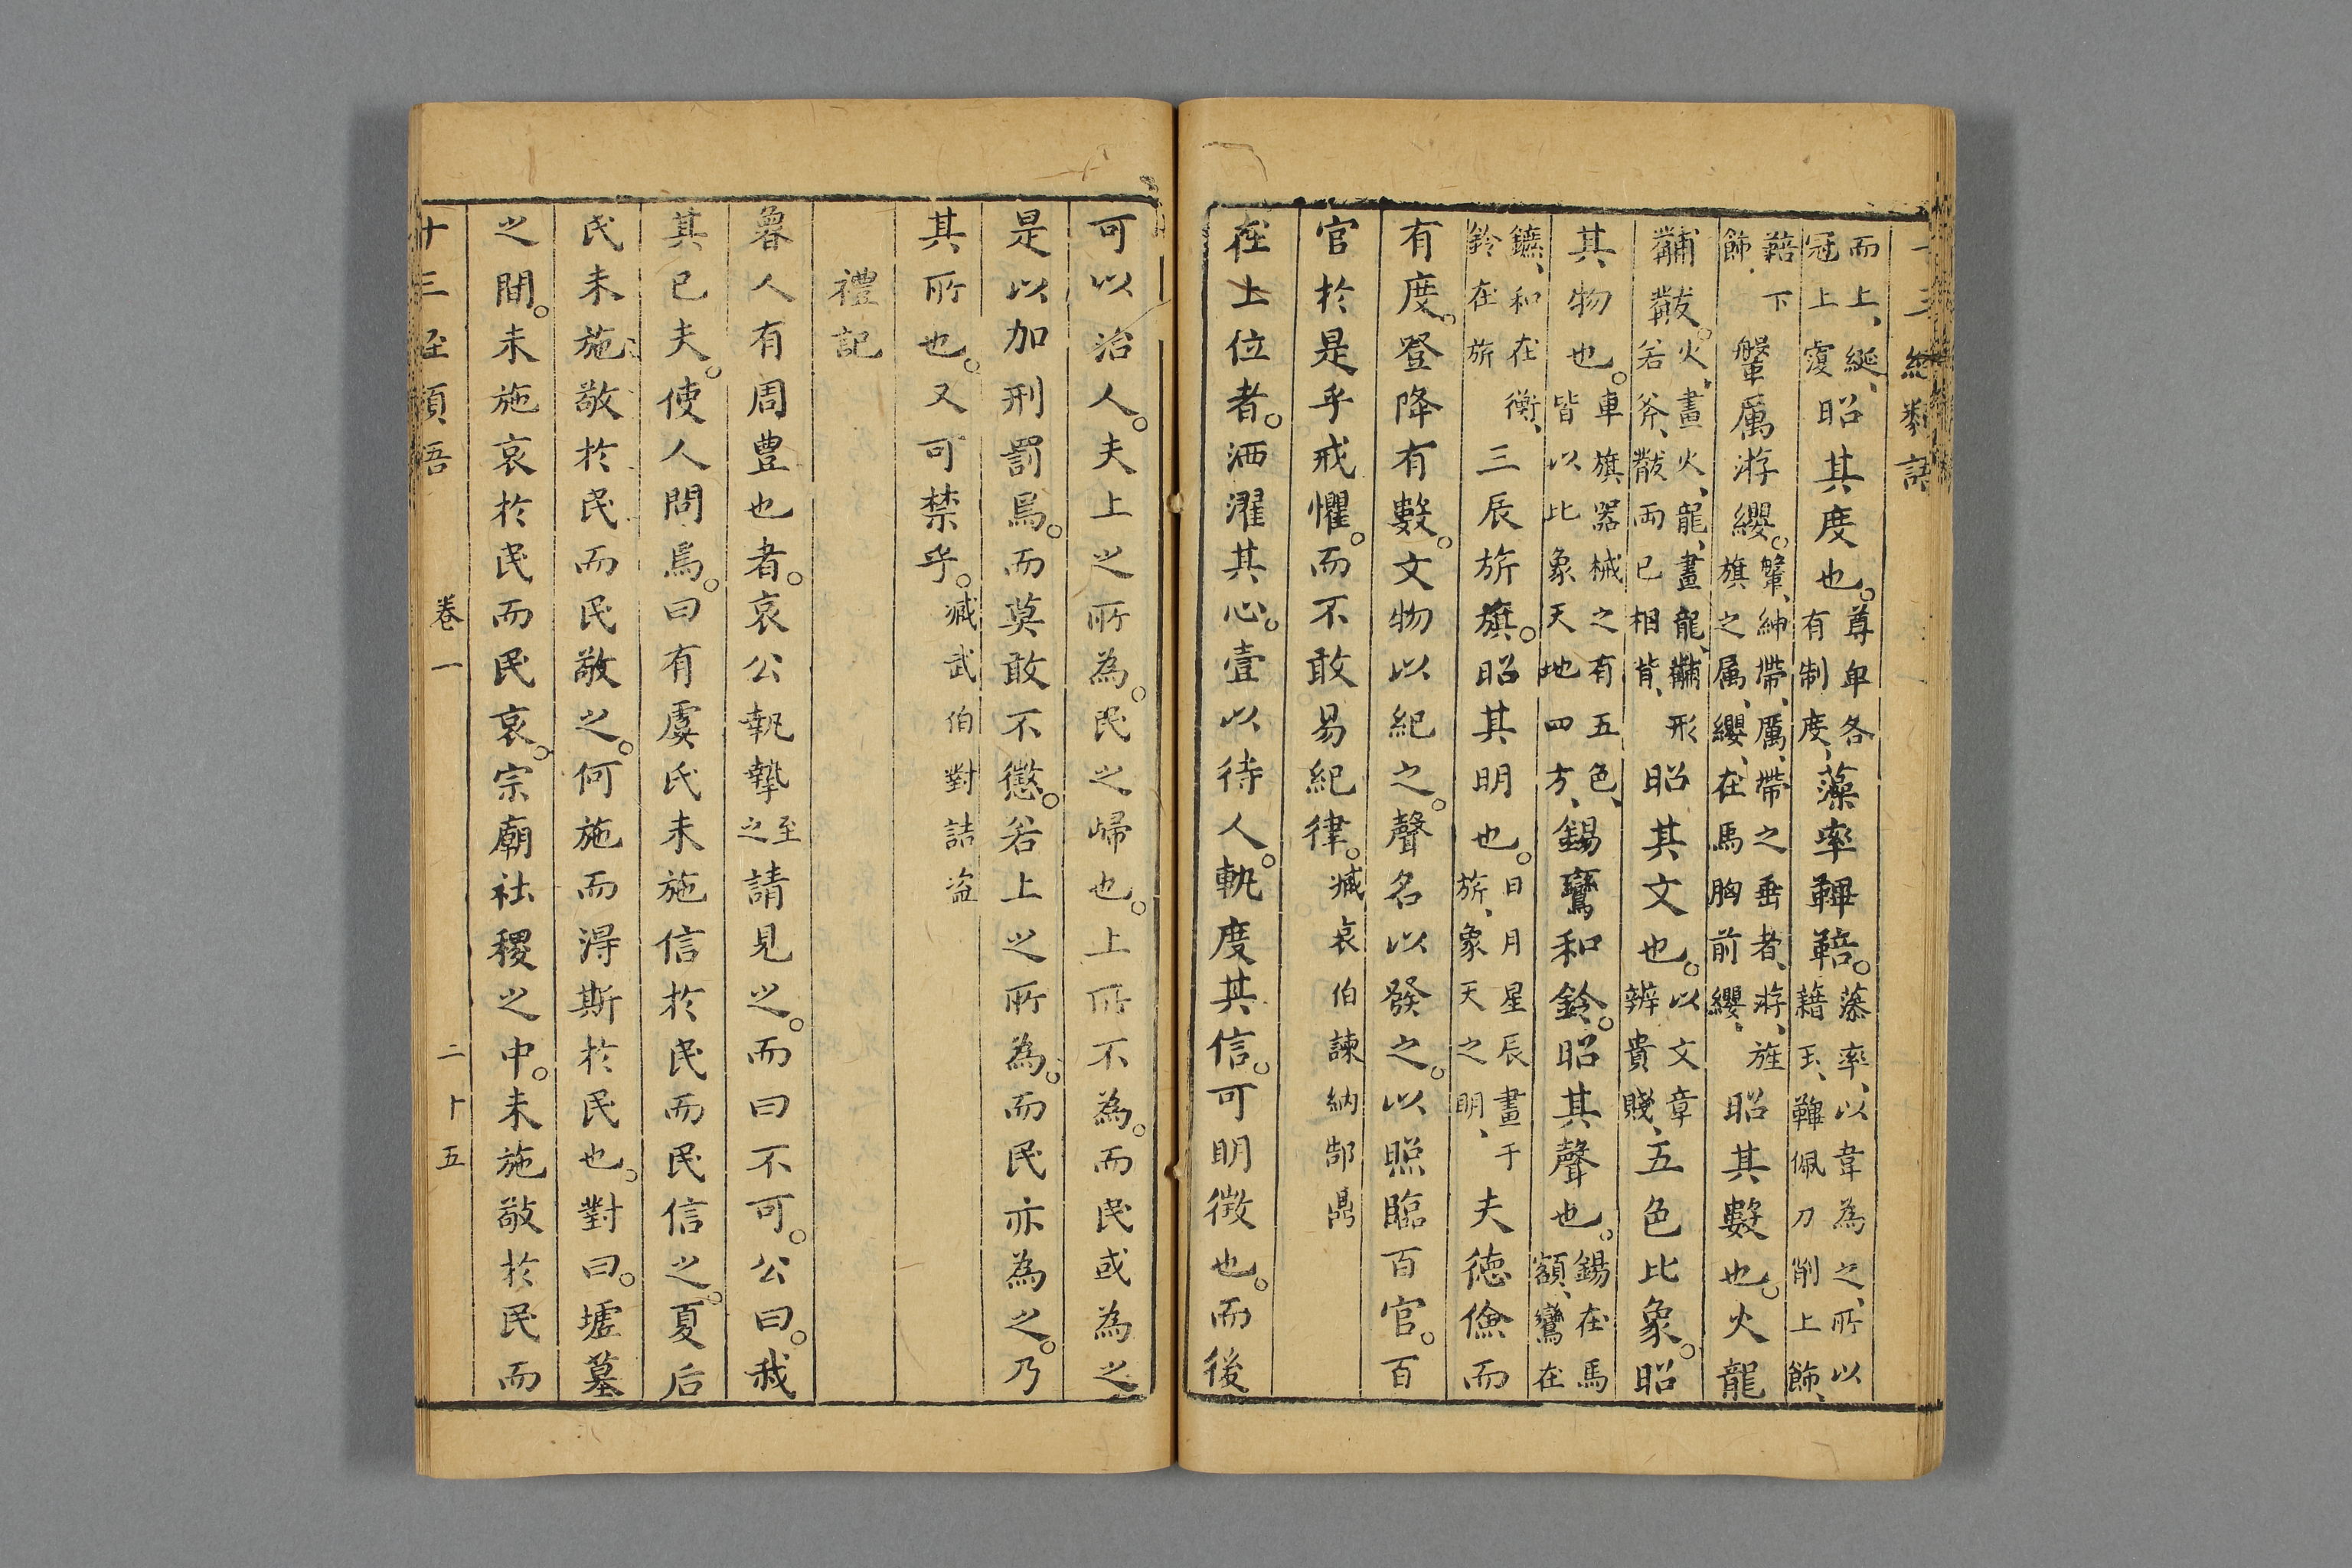 十三經類語
而上、綖、冠上覆昭其度也。尊卑各有制度、藻率鞞鞛。藻率、以韋為之、所以藉玉、鞞佩刀削上飾、
鞛下飾、鞶厲游纓。鞶、紳帶、厲、帶之垂者、游、旌旗之属、纓、在馬胸前纓、昭其數也。火龍
黼黻。火、畫火、龍、畫龍、黼形若斧、黻兩已相背、昭其文也。以文章辨貴賤、五色比象。昭
其物也。車旗器械之有五色、皆以比象天地四方、鍚鸞和鈴。昭其聲也。鍚在馬額、鸞在
鑣、和在衡、鈴在旂三辰旂旗。昭其明也。日月星辰畫于旂、象天之明、夫德儉而
有度。登降有數。文物以紀之。聲名以發之。以照臨百官。百
官於是乎戒懼。而不敢易紀律。臧哀伯諫納郜鼎
在上位者。洒濯其心。壹以待人。軌度其信。可明徵也。而後
可以治人。夫上之所為。民之歸也。上所不為。而民或為之
是以加刑罰焉。而莫敢不懲。若上之所為。而民亦為之。乃
其所也。又可禁乎。臧武伯對詰盜
禮記
魯人有周豊也者。哀公執摯至之請見之。而曰不可。公曰。我
其已夫。使人問焉。曰有虞氏未施信於民而民信之。夏后
氏未施敬於民而民敬之。何施而得斯於民也。對曰。墟墓
之間。未施哀於民而民哀。宗廟社稷之中。未施敬於民而
十三經類語 卷一 二十五